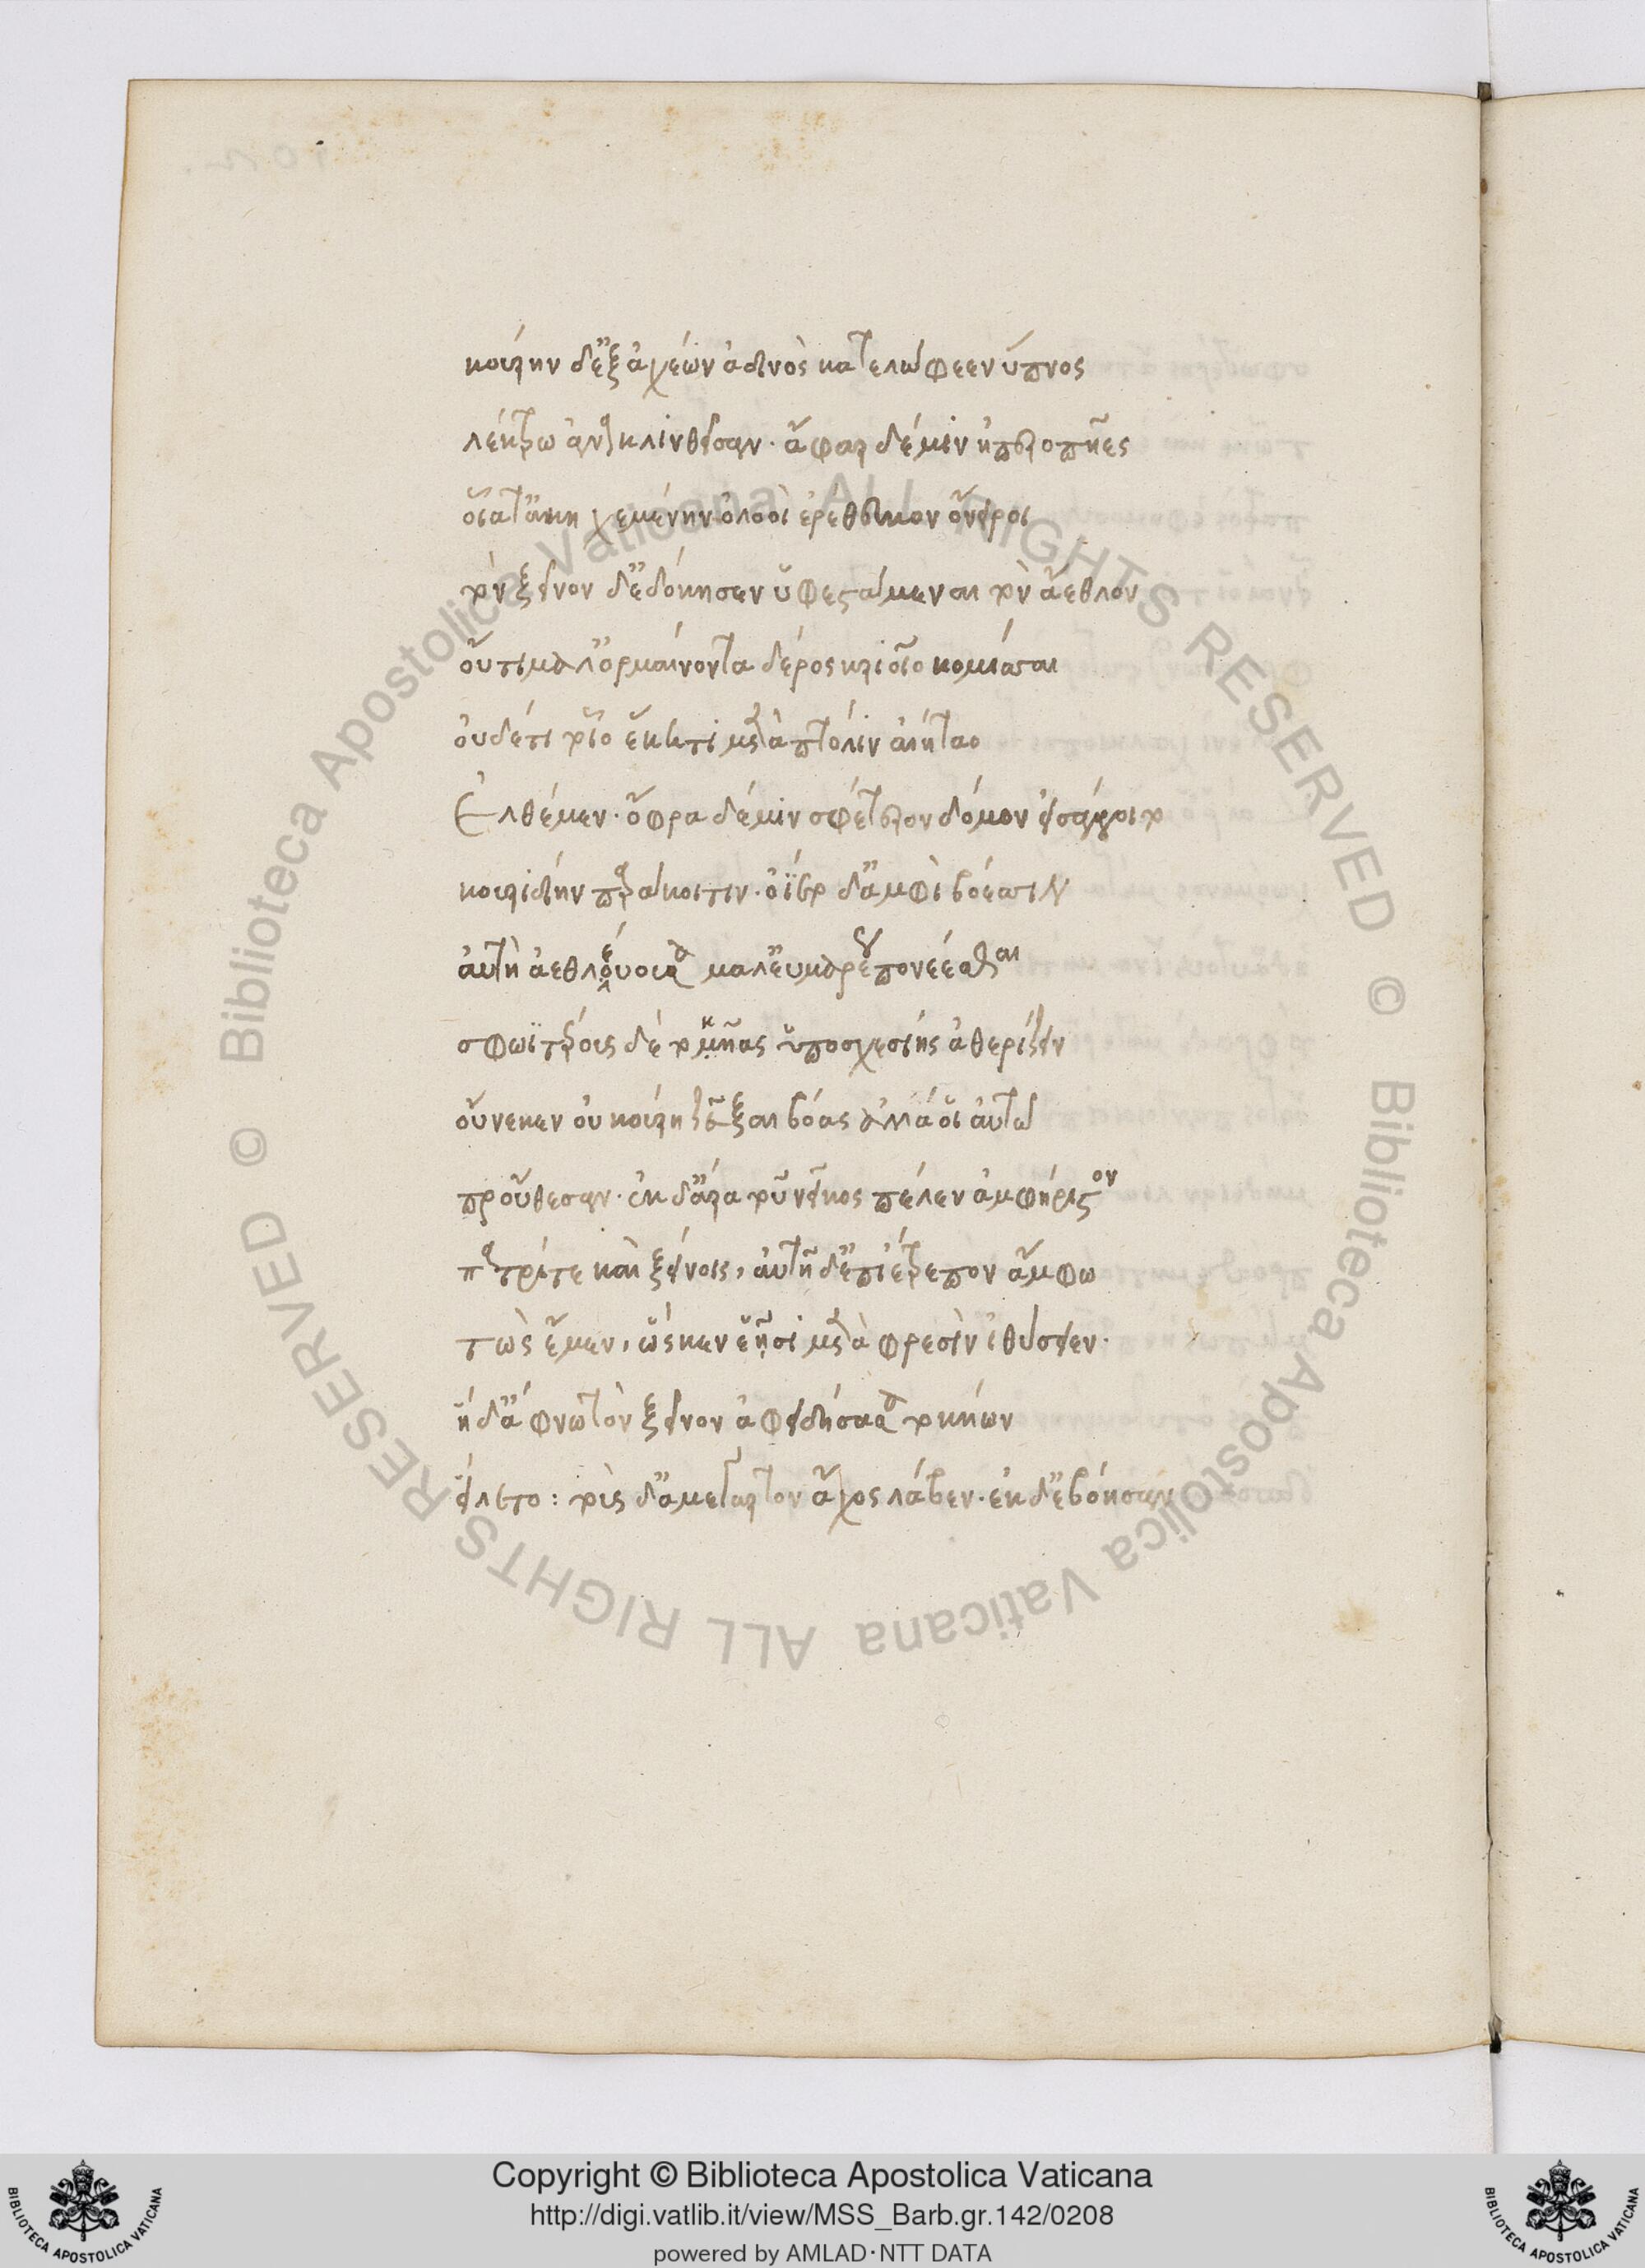 κούρην δ' ἐξ ἀχέων ἀδινὸς κατελώφεεν ὕπνος
λέκτρω ἀνακλινθεῖσαν· ἄφαρ δέ μιν ἠπεροπῆες
οἷά τ' ἀκηχεμένην ὀλοοὶ ἐρέθεσκον ὄνειροι
τὸν ξεῖνον δ' ἐδόκησεν ὑφεστάμεναι τὸν ἄεθλον
οὔτι μάλ' ὁρμαίνοντα δέρος κριοῖο κομίσσαι
οὐδέ τι τοῖο ἕκητι μετὰ πτόλιν αἰήταο
Ἐλθέμεν· ὄφρα δέ μιν σφέτερον δόμον εἰσαγάγοιτο
κουριδίην παράκοιτιν· ὀΐετο δ' ἀμφὶ βόεσσιν
αὐτὴ ἀεθλεύουσα μάλ' εὐμαρέως πονέεσθαι
σφωϊτέροις δὲ τοκῆας ὑποσχεσίης ἀθερίζειν
οὕνεκεν οὐ κούρη ζεῦξαι βόας ἀλλά οἱ αὐτῶ
προύθεσαν· ἐκ δ' ἄρα τοῦ νεῖκος πέλεν ἀμφήριστον
πατρί τε καὶ ξείνοις, αὐτῆ δ' ἐπιέτρεπον ἄμφω
τὼς ἔμεν, ὥς κεν ἑῆσι μετὰ φρεσὶν ἰθύσειεν·
ἡ δ' ἄφνω τὸν ξεῖνον ἀφειδήσασα τοκήων
εἵλετο: τοὺς δ' ἀμέγαρτον ἄχος λάβεν· ἐκ δ' ἐβόησαν
Copyright © Biblioteca Apostolica Vaticana
http://digi.vatlib.it/view/MSS_Barb.gr.142/0208
powered by AMLAD·NTT DATA
BIBLIOTECA APOSTOLICA VATICANA
BIBLIOTECA APOSTOLICA VATICANA
© Biblioteca Apostolica Vaticana ALL RIGHTS RESERVED © Biblioteca Apostolica Vaticana ALL RIGHTS RESERVED